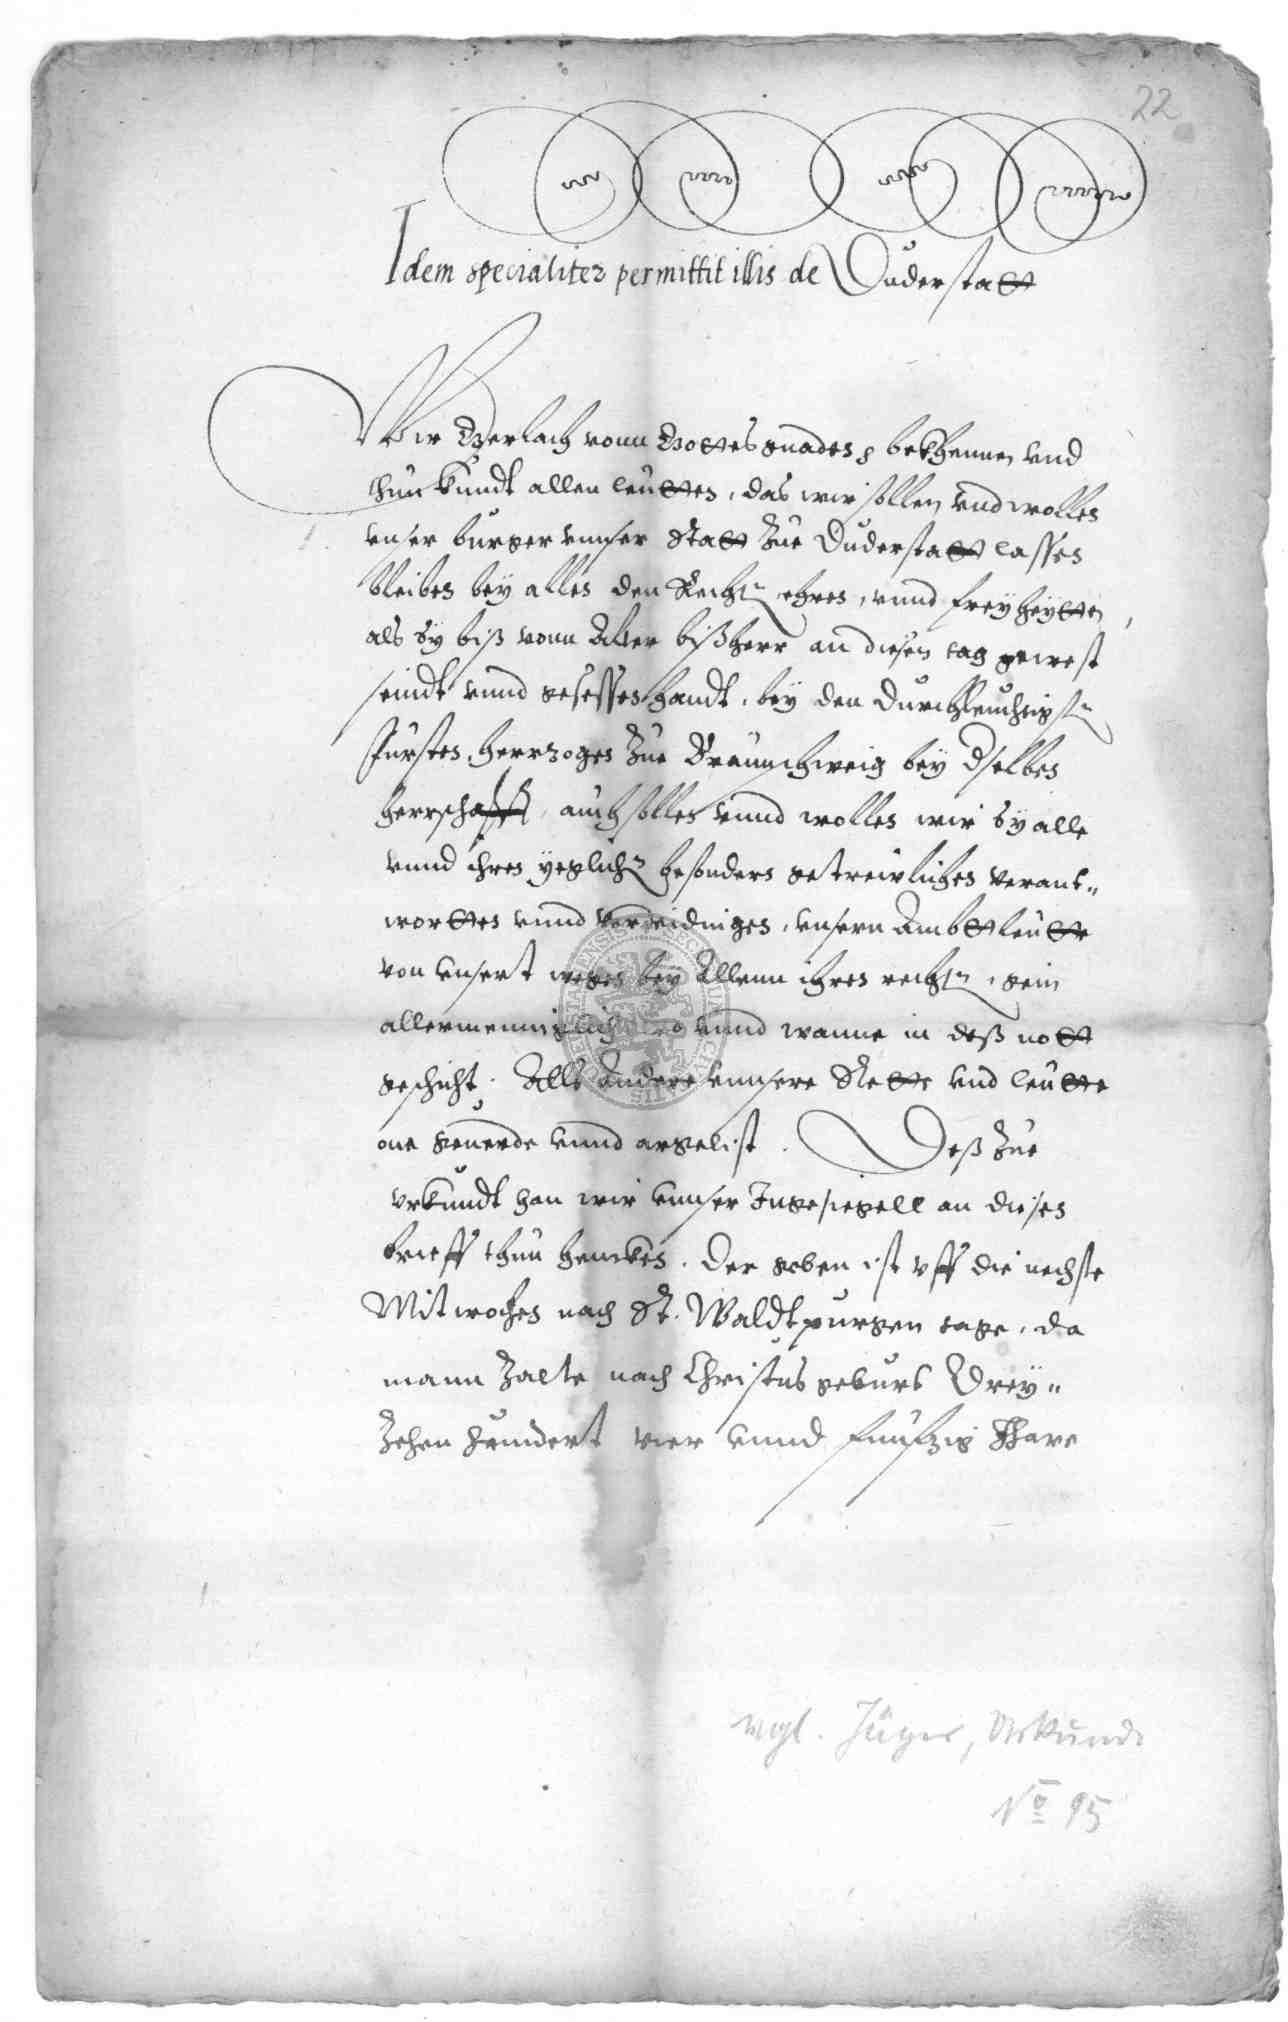 22
Idem specialiter permittit illis de Duderstatt
Wir Gerlach vonn Gottes gnaden bekhennen vnd
thun kundt allen leutten, das wir sollen vnd wollen
vnser burger vnnser Statt zue Duderstatt lassen
bleiben bey allen den Rechtn ehren, vnnd freyheytten,
als sy biß vonn Alter bißherr an diesen tag gewest
seindt vnnd gesessen handt, bey den Durchleuchtigstn
Fürsten, herrzogen zue Braunschweig bey dselben
herrschafft, auch sollen vnnd wollen wir sy alle
vnnd ihren yeglichn besonders getrewlichen verant„
wortten vnnd verteidingen, vnsern Ambttleutte
von vnsert wegen bey Allenn ihren rechtn, gein
allermenniglich wo vnnd wanne in deß nott
geschicht. Alls Andere vnnsere Stette vnd leutte
one geuerde vnnd argelist. Deß zue
vrkundt han wir vnnser Ingesiegell an diesen
brieff thun hencken. Der geben ist vff die nechste
Mitwochen nach St. Waldtpurgen tage, da
mann zalte nach Christus geburt Drey„
zehen hundert vier vnnd funfzig Jhare
vgl. Jäger, Urkunde
No 95